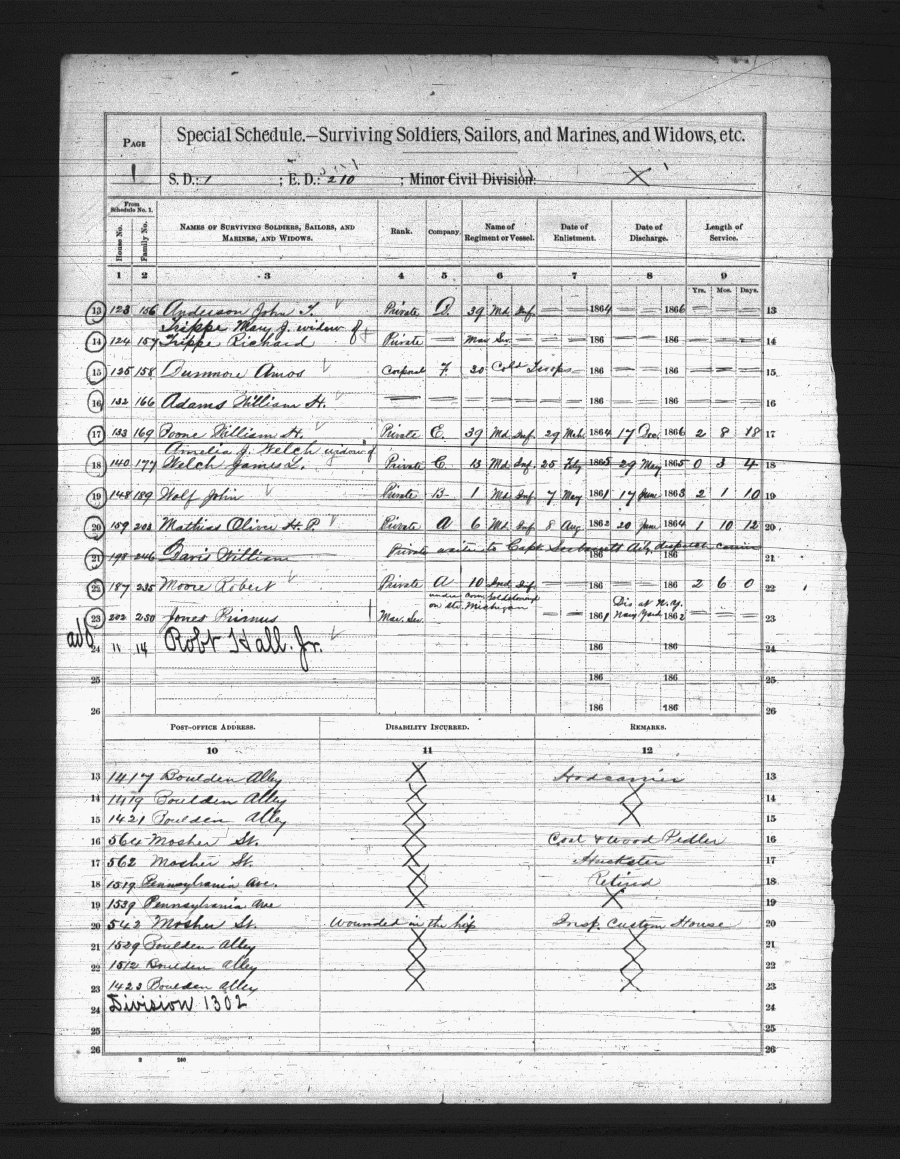 PAGE
1
Special Schedule.—Surviving Soldiers, Sailors, and Marines, and Widows, etc.
S. D.: 1 ; E. D.: 210 ; Minor Civil Division: X
From Schedule No. 1.
House No. Family No. NAMES OF SURVIVING SOLDIERS, SAILORS, AND MARINES, AND WIDOWS. Rank. Company. Name of Regiment or Vessel. Date of Enlistment. Date of Discharge. Length of Service.
1 2 3 4 5 6 7 8 9
Yrs. Mos. Days.
13 123 156 Anderson John T. Private D. 39 Md. Inf. — — 1864 — — 1866 — — — 13
Trippe Mary J. widow of
14 124 157 Trippe Richard Private — — — 186 — — 186 — — — 14
15 125 158 Dunmore Amos Corporal F. 30 Cold Troops — 186 — — 186 — — — 15
16 132 166 Adams William H. — — — — — 186 — — 186 — — — 16
17 133 169 Boone William H. Private E. 39 Md. Inf. 29 Mch. 1864 17 Dec. 1866 2 8 18 17
Amelia J. Welch widow of
18 140 177 Welch James L. Private C. 13 Md. Inf. 25 Feby 1865 29 May 1865 0 3 4 18
19 148 189 Wolf John Private B 1 Md Inf. 7 May 1861 17 June 1863 2 1 10 19
20 159 203 Mathias Oliver H. P. Private A 6 Md. Inf. 8 Aug. 1862 20 June 1864 1 10 12 20
21 198 246 Davis William Private waiter to Capt. 186 186 21
22 187 235 Moore Robert Private A 10 Ind. Inf. — — 186 — — 186 2 6 0 22
under Com. Goldsborough
on str. Michigan
Dis at N.Y.
23 202 250 Jones Primus Mar. Ser. — — 1861 Navy Yard 1862 23
add
24 11 14 Robt Hall. Jr. 186 186 24
25 186 186 25
26 186 186 26
POST-OFFICE ADDRESS. DISABILITY INCURRED. REMARKS.
10 11 12
13 1417 Boulden Alley X Hodcarrier 13
14 1419 Boulden Alley X X 14
15 1421 Boulden Alley X X 15
16 564 Mosher St. X Coal & Wood Pedler 16
17 562 Mosher St. X Huckster 17
18 1519 Pennsylvania Ave. X Retired 18
19 1539 Pennsylvania Ave X X 19
20 542 Mosher St. Wounded in the hip Insp. Custom House 20
21 1529 Boulden Alley X X 21
22 1512 Boulden Alley X X 22
23 1423 Boulden Alley X X 23
24 Division 1302 24
25 25
26 26